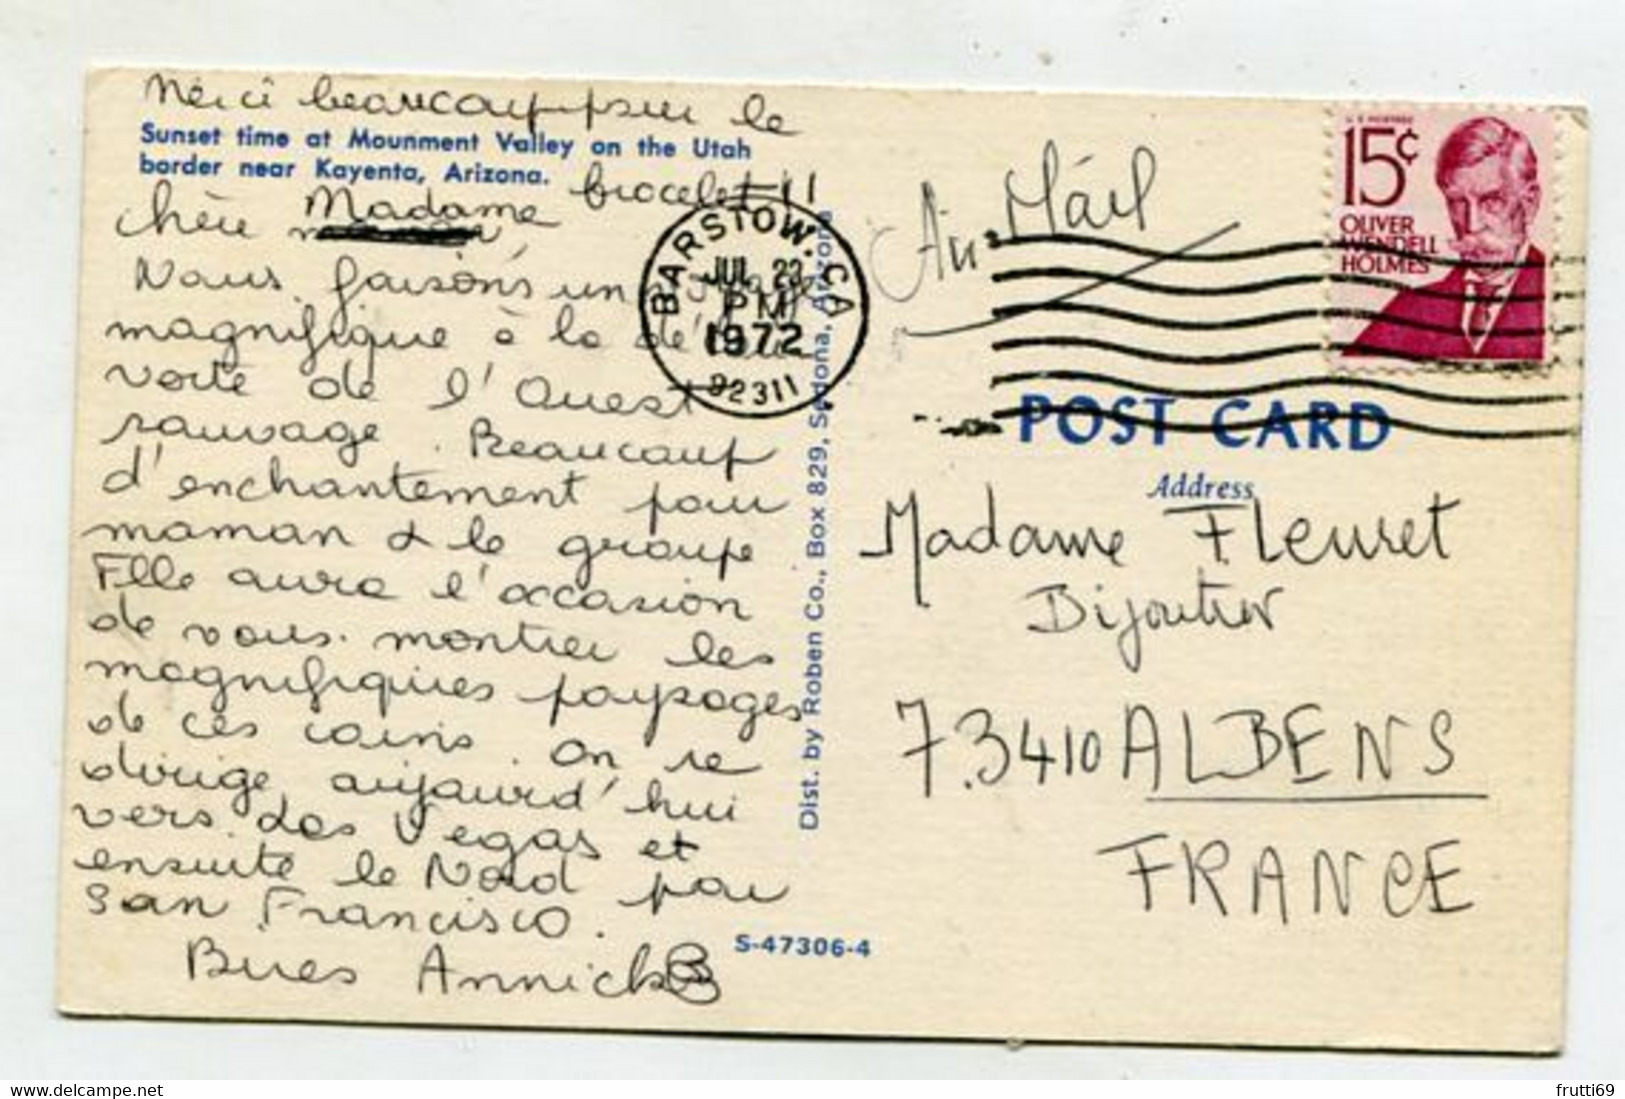 Merci beaucoup pour le
Sunset time at Mounment Valley on the Utah
border near Kayenta, Arizona.
bracelet !!
Chère Madame
Nous faisons un
magnifique à la
verte de l'Ouest
sauvage. Beaucoup
d'enchantement pour
maman & le groupe
Elle aura l'occasion
de vous montrer les
magnifiques paysages
de ces coins. On se
dirige aujourd'hui
vers Las Vegas et
ensuite le Nord par
San Francisco.
Bises Annick
S-47306-4
Dist. by Roben Co., Box 829, Sedona, Arizona
BARSTOW, CA
JUL 23
PM
1972
92311
Air Mail
U S POSTAGE
15¢
OLIVER
WENDELL
HOLMES
POST CARD
Address
Madame Fleuret
Bijoutier
73410 ALBENS
FRANCE
https://www.delcampe.net
frutti69